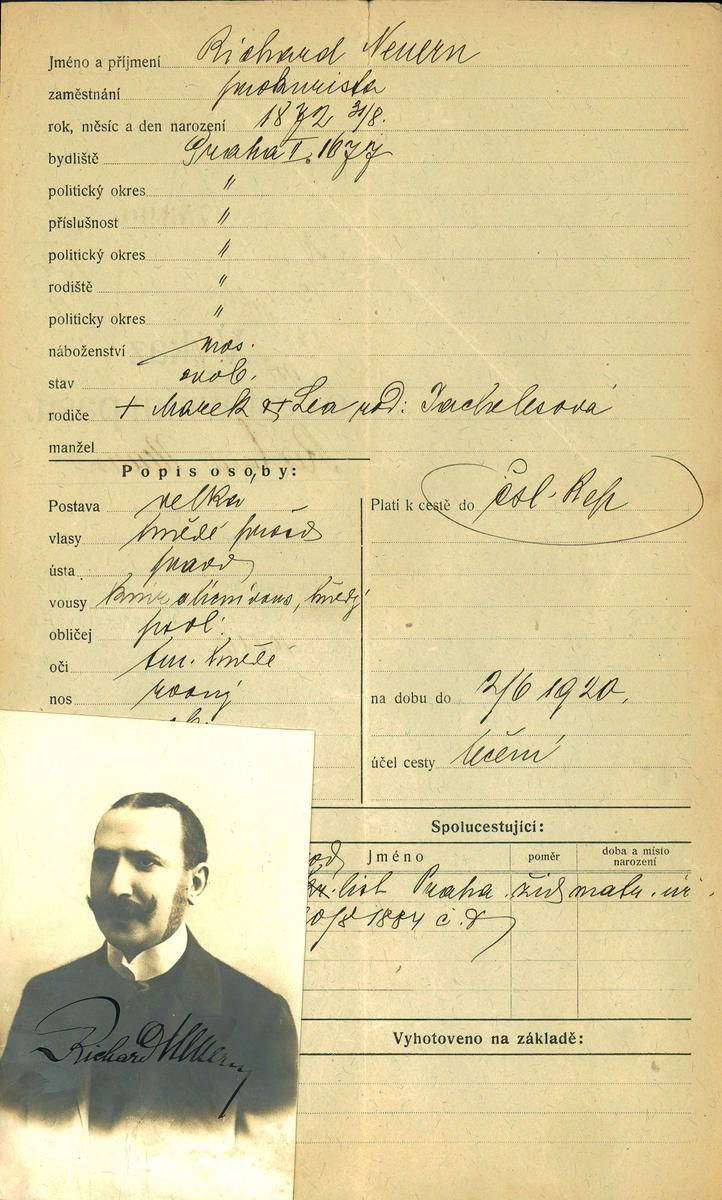 Jméno a příjmení Richard Neuern
zaměstnání prokurista
rok, měsíc a den narození 1872 31/8.
bydliště Praha II. 1677
politický okres "
příslušnost "
politický okres "
rodiště "
politicky okres "
náboženství mos.
stav svob.
rodiče + Marek & + Lea rod: Jachelesová
manžel
Popis osoby:
Postava velká
vlasy hnědé prošed
ústa prav
vousy knír hnědý
obličej podl.
oči tm. hnědé
nos rovný
Platí k cestě do Čsl. Rep
na dobu do 2/6 1920.
účel cesty léčení
Spolucestující:
Jméno poměr doba a místo narození
kř. list Praha žid matr. úř.
20/8 1884 č. d
Vyhotoveno na základě:
Richard Neuern